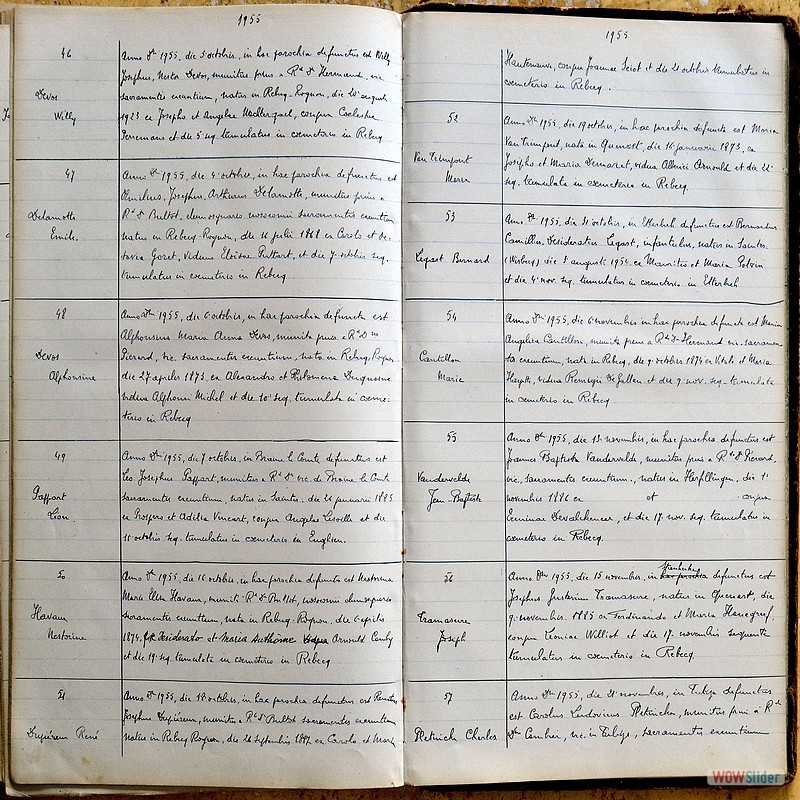 1955
46
Devos
Willy
Anno Dni 1955, die 3 octobris, in hac parochia defunctus est Willy
Josephus, Nestor Devos, munitus prius a Rdo Dno Hermand, vic.
sacramentis exeuntium, natus in Rebecq-Rognon, die 20 augusti
1923 ex Josepho et Angela, conjux Coelestina
Perremans et die 5 seq. tumulatus in coemeterio in Rebecq
47
Delamotte
Emile.
Anno Dni 1955, die 4 octobris, in hac parochia defunctus est
Aemilius, Josephus, Arthurus Delamotte, munitus prius a
Rdo Dno Bullot, eleemosynario nosocomii sacramentis exeuntium
natus in Rebecq-Rognon, die 16 julii 1868 ex Carolo et Oc-
tavia Goret, viduus Eloisae et die 7 octobris seq.
tumulatus in coemeterio in Rebecq
48
Devos
Alphonsine
Anno Dni 1955, die 6 octobris, in hac parochia defuncta est
Alphonsina Maria Anna Devos, munita prius a Rdo Dno
Pierard, vic. sacramentis exeuntium, nata in Rebecq-Rognon
die 27 aprilis 1873, ex Alexandro et Philomena Duquesne
vidua Alphonsi Michel et die 10 seq. tumulata in coeme-
terio in Rebecq
49
Pappart
Léon.
Anno Dni 1955, die 7 octobris, in Braine le Comte defunctus est
Leo Josephus Pappart, munitus a Rdo Dno vic. de Braine le Comte
sacramentis exeuntium, natus in Saintes, die 22 januarii 1885
ex Prospero et Adilia Vincart, conjux Angelae et die
11 octobris seq. tumulatus in coemeterio in Enghien.
50
Havaux
Nestorine
Anno Dni 1955, die 16 octobris, in hac parochia defuncta est Nestorina
Maria Elisa Havaux, munita Rdo Dno Bullot, nosocomii eleemosynario
sacramentis exeuntium, nata in Rebecq-Rognon, die 6 aprilis
1874, ex Desiderato et Maria Anthome vidua Arnould
et die 19 seq. tumulata in coemeterio in Rebecq
51
Dupiéreux René
Anno Dni 1955, die 18 octobris, in hac parochia defunctus est Renatus
Josephus Dupiéreux, munitus a Rdo Dno Bullot sacramentis exeuntium
natus in Rebecq Rognon, die 24 septembris 1887 ex Carolo et Maria
1955
Hautenauve, conjux Joannae et die 21 octobris tumulatus in
coemeterio in Rebecq.
52
Van Trimpont
Maria
Anno Dni 1955, die 19 octobris, in hac parochia defuncta est Maria
Van Trimpont, nata in Quenast, die 16 januarii 1873, ex
Josepho et Maria Demaret, vidua Alberici Arnould et die 22
seq. tumulata in coemeterio in Rebecq
53
Lepast Bernard
Anno Dni 1955, die 31 octobris, in Etterbeek defunctus est Bernardus
Camillus, Desideratus Lepast, infantulus, natus in Saintes
(Wisbecq) die 3 augusti 1954 ex Mauritio et Maria
et die 4 nov. seq. tumulatus in coemeterio in Etterbeek
54
Cantillon
Marie
Anno Dni 1955, die 6 novembris in hac parochia defuncta est Maria
Angelica Cantillon, munita prius a Rdo Dno Hermand vic. sacramen-
tis exeuntium, nata in Rebecq, die 9 octobris 1874 ex Vitali et Maria
vidua Remigii De Gallon et die 9 nov. seq. tumulata
in coemeterio in Rebecq
55
Vandervelde
Jean-Baptiste
Anno Dni 1955, die 13 novembris, in hac parochia defunctus est
Joannes Baptista Vandervelde, munitus prius a Rdo Dno Pierard,
vic. sacramentis exeuntium, natus in Herffelingen, die 1
novembris 1886 ex et conjux
Erminae et die 17 nov. seq. tumulatus in
coemeterio in Rebecq.
56
Tramasure
Joseph
Anno Dni 1955, die 15 novembris, in hac parochia defunctus est
Josephus Justinus Tramasure, natus in Quenast, die
9 novembris 1885 ex Ferdinando et Maria Hanegraef,
conjux Leoniae Williot et die 17 novembris sequente
tumulatus in coemeterio in Rebecq.
57
Pletinckx Charles
Anno Dni 1955, die 21 novembris, in Tubize defunctus
est Carolus Ludovicus Pletinckx, munitus prius a Rdo
Dno vic. in Tubize, sacramentis exeuntium
WOWSlider